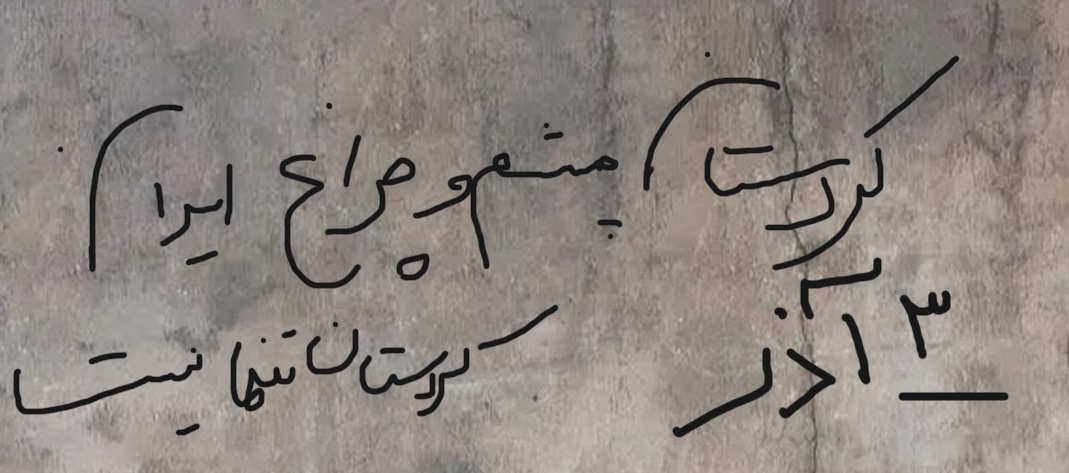 کردستان چشم و چراغ ایران
۳ آذر
کردستان تنها نیست